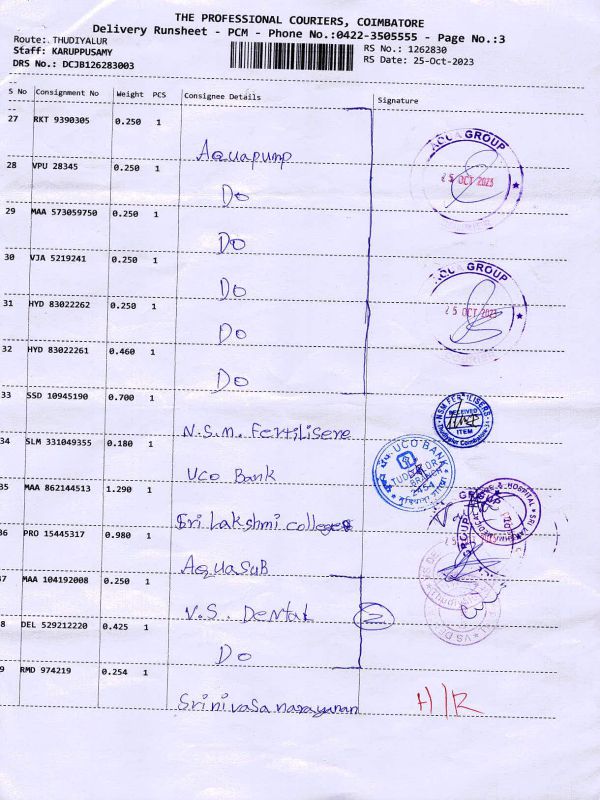 THE PROFESSIONAL COURIERS, COIMBATORE
Delivery Runsheet - PCM - Phone No.:0422-3505555 - Page No.:3
Route: THUDIYALUR
RS No.: 1262830
Staff: KARUPPUSAMY
RS Date: 25-Oct-2023
DRS No.: DCJB126283003
S No Consignment No Weight PCS Consignee Details Signature
27 RKT 9390305 0.250 1 Aquapump
ACUA GROUP
25 OCT 2023
28 VPU 28345 0.250 1 Do
29 MAA 573059750 0.250 1 Do
30 VJA 5219241 0.250 1 Do
ACUA GROUP
25 OCT 2023
31 HYD 83022262 0.250 1 Do
32 HYD 83022261 0.460 1 Do
33 SSD 10945190 0.700 1 N.S.M. Fertilisere
NSM FERTILISERS
RECEIVED
ITEM
34 SLM 331049355 0.180 1 UCO Bank
UCO BANK
BRANCH
2454
35 MAA 862144513 1.290 1 Sri Lakshmi colleges
& HOSPITAL
GROUP
36 PRO 15445317 0.980 1 AquaSuB
37 MAA 104192008 0.250 1 V.S. Dental
2
VS DE
38 DEL 529212220 0.425 1 Do
39 RMD 974219 0.254 1 Srinivasa narayanan
H/R